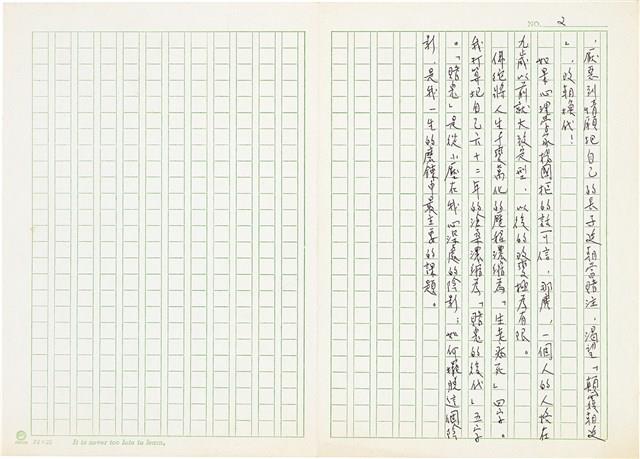 NO. 2
，厭惡到情願把自己的長子送去當賭注，渴望「顛簸朝廷
」，改朝換代！
如果心理學家楊國樞的話可信，那麼，一個人的人格在
九歲以前就大致定型，以後的改變極為有限。
佛經將人生千變萬化的歷程濃縮為「生老病死」四字。
我打算把自己六十二年的滄桑濃縮為「賭鬼的後代」五字
。「賭鬼」是從小壓在我心深處的陰影；如何擺脫這個陰
影，是我一生的磨鍊中最主要的課題。
24×25 It is never too late to learn.